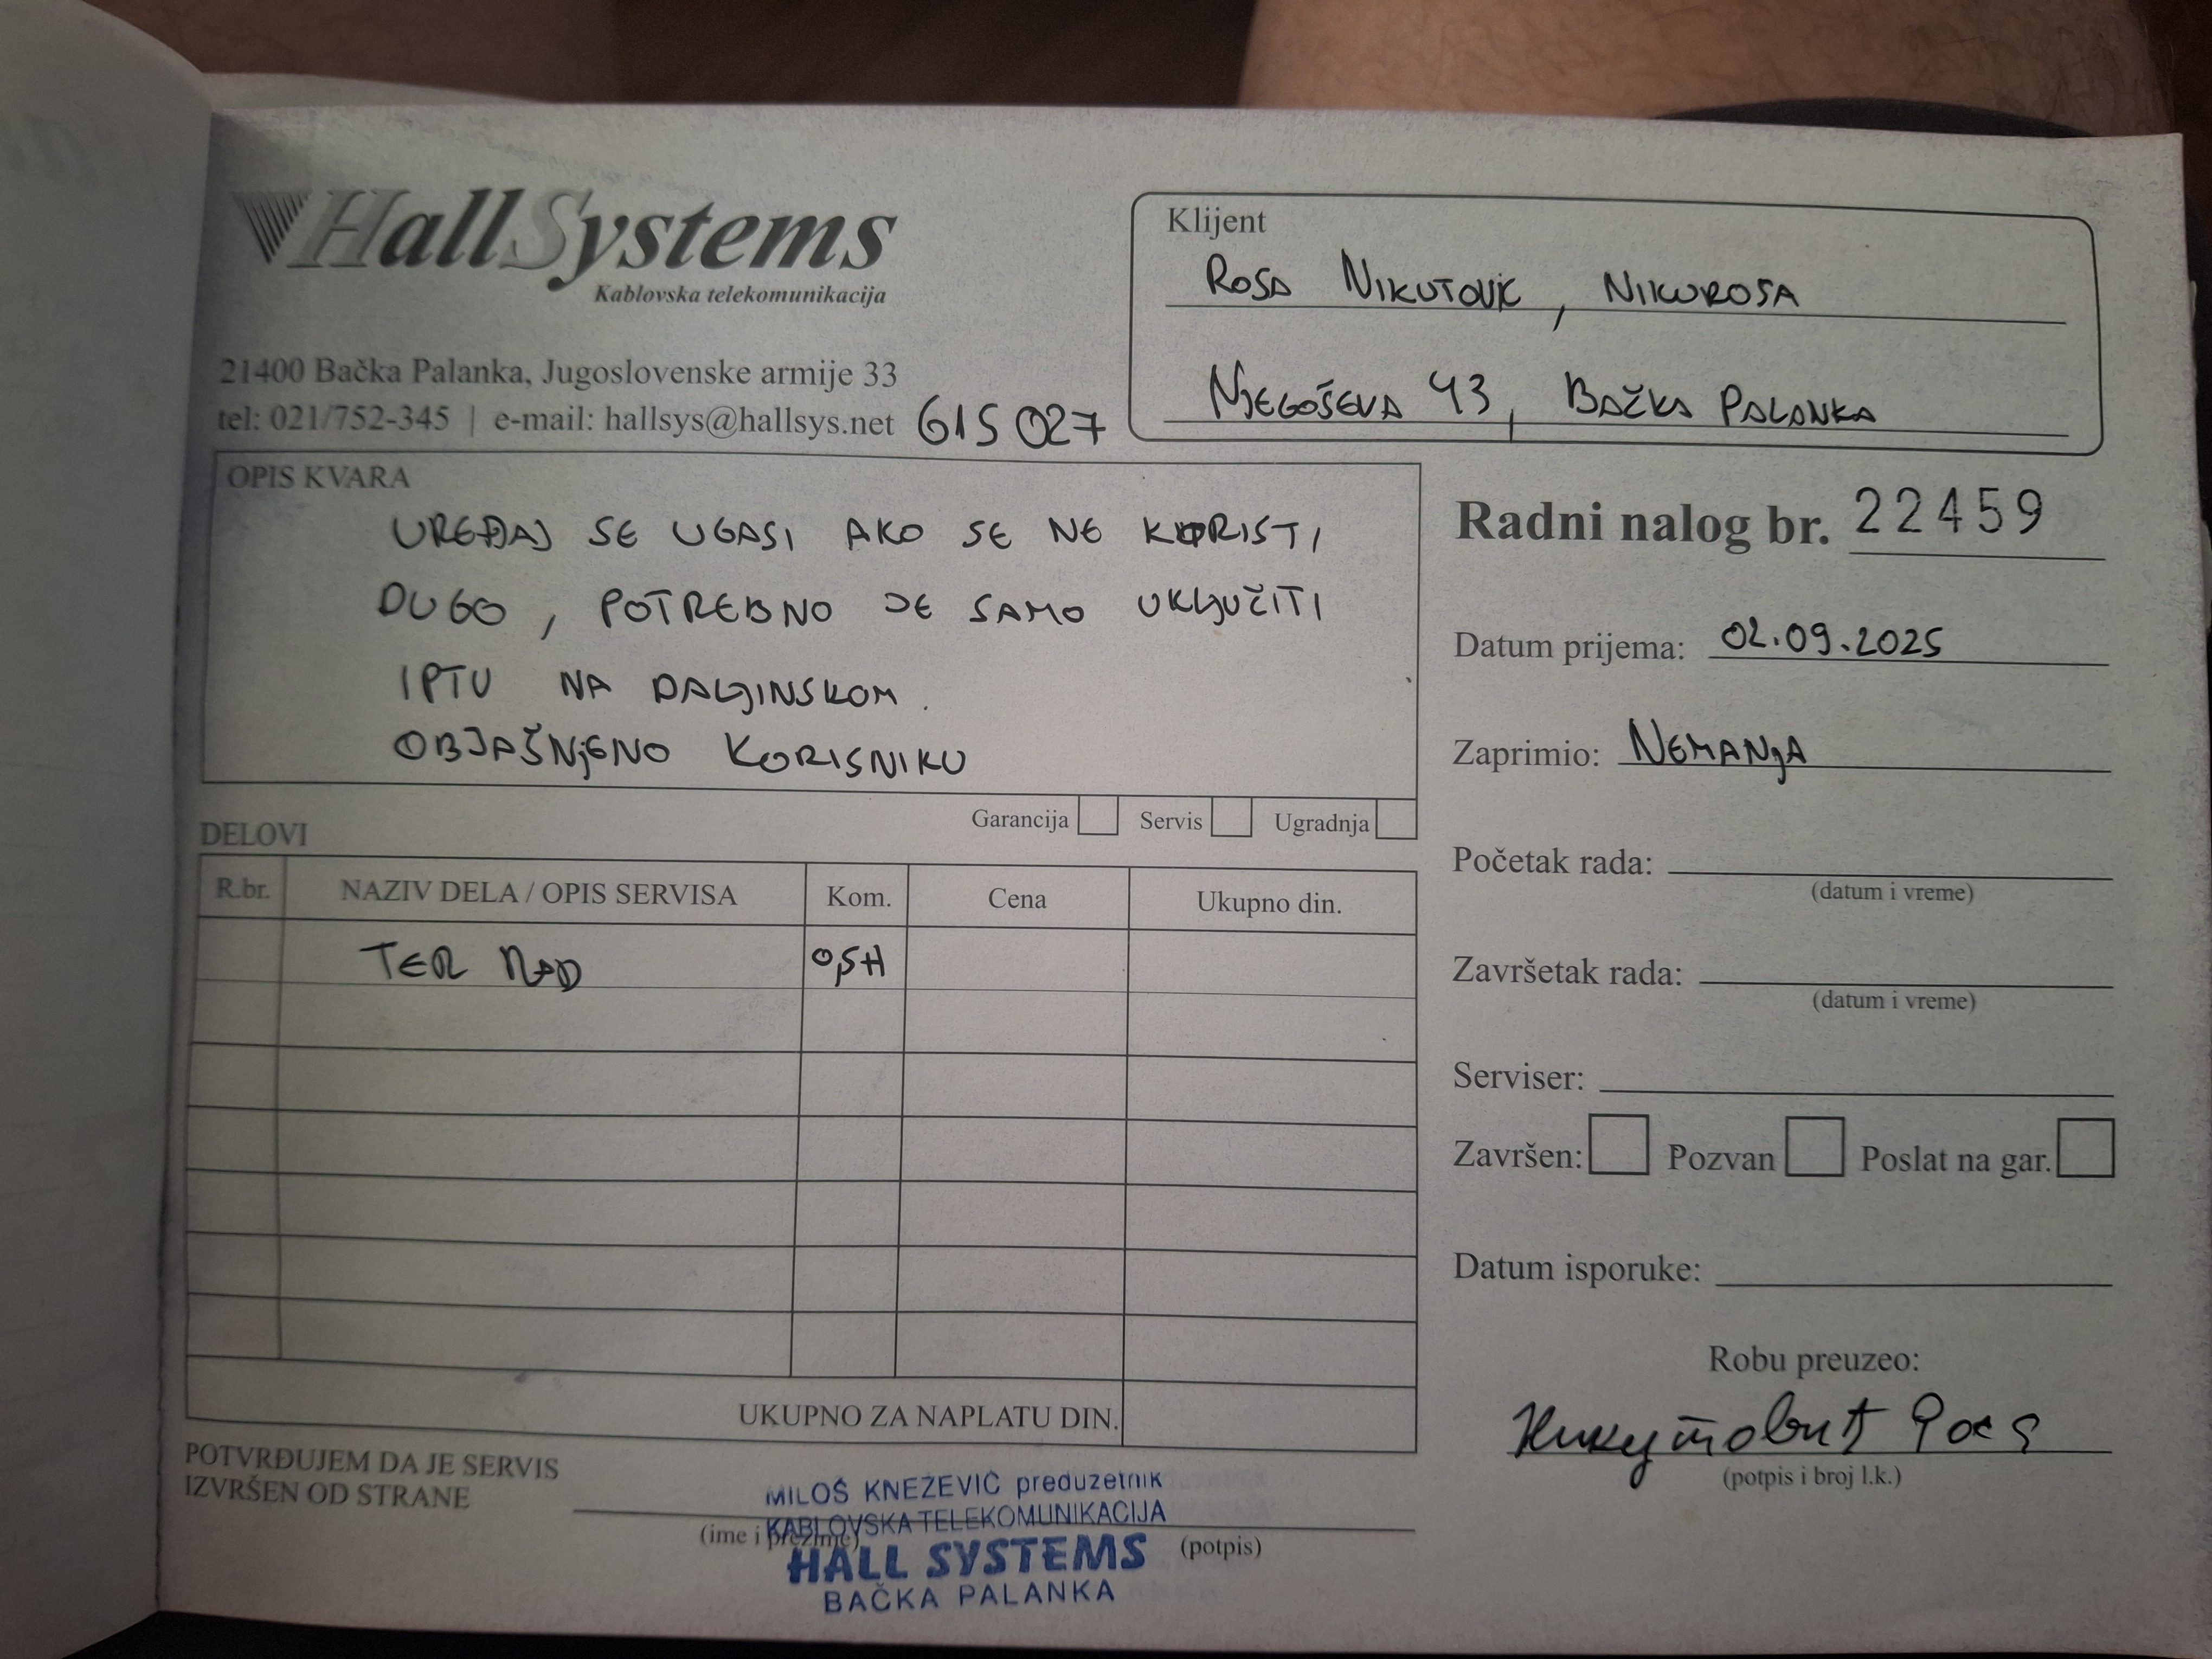 HallSystems
Kablovska telekomunikacija
21400 Bačka Palanka, Jugoslovenske armije 33
tel: 021/752-345 | e-mail: hallsys@hallsys.net 615 027
Klijent
ROSA NIKUTOVIĆ, NIKUROSA
NJEGOŠEVA 43, BAČKA PALANKA
OPIS KVARA
UREĐAJ SE UGASI AKO SE NE KORISTI
DUGO, POTREBNO JE SAMO UKLJUČITI
IPTV NA DALJINSKOM.
OBJAŠNJENO KORISNIKU
Garancija Servis Ugradnja
Radni nalog br. 22459
Datum prijema: 02.09.2025
Zaprimio: NEMANJA
Početak rada:
(datum i vreme)
Završetak rada:
(datum i vreme)
Serviser:
Završen: Pozvan Poslat na gar.
Datum isporuke:
Robu preuzeo:
Никутовић Роса
(potpis i broj l.k.)
DELOVI
R.br. NAZIV DELA / OPIS SERVISA Kom. Cena Ukupno din.
TER RAD 0,5H
UKUPNO ZA NAPLATU DIN.
POTVRĐUJEM DA JE SERVIS
IZVRŠEN OD STRANE
(ime i prezime) (potpis)
MILOŠ KNEŽEVIĆ preduzetnik
KABLOVSKA TELEKOMUNIKACIJA
HALL SYSTEMS
BAČKA PALANKA